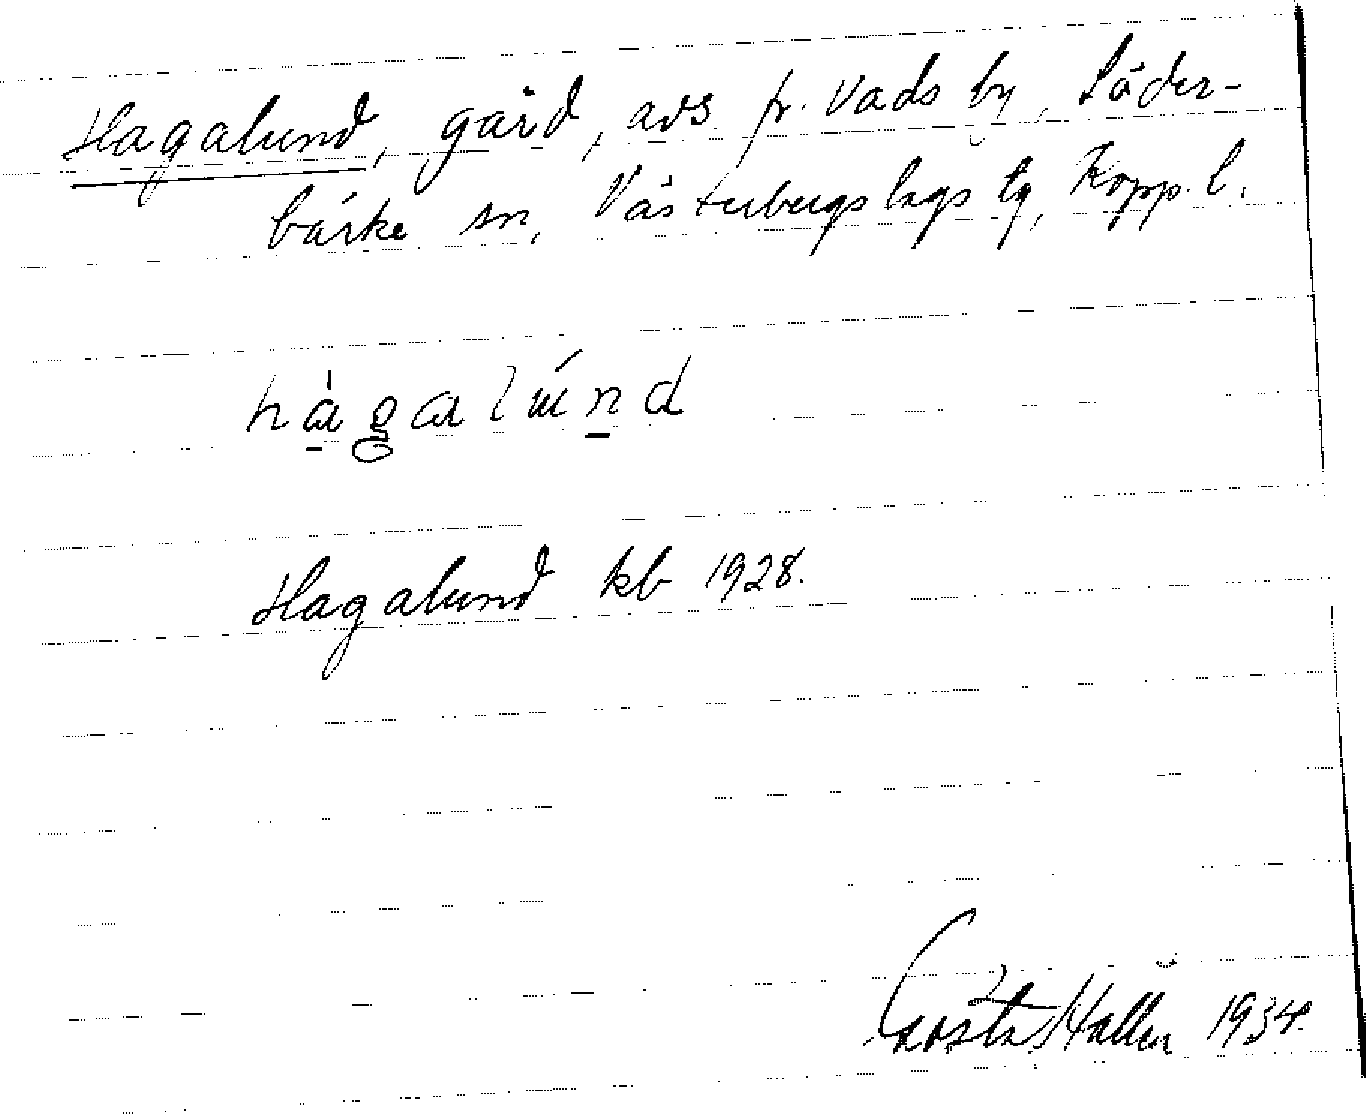 Hagalund, gård, avs. fr. Vads by, Söder-
bärke sn, Västerbergslags tg, Kopp. l.
hàgalúnd
Hagalund kb 1928.
Gösta Hallén 1934.